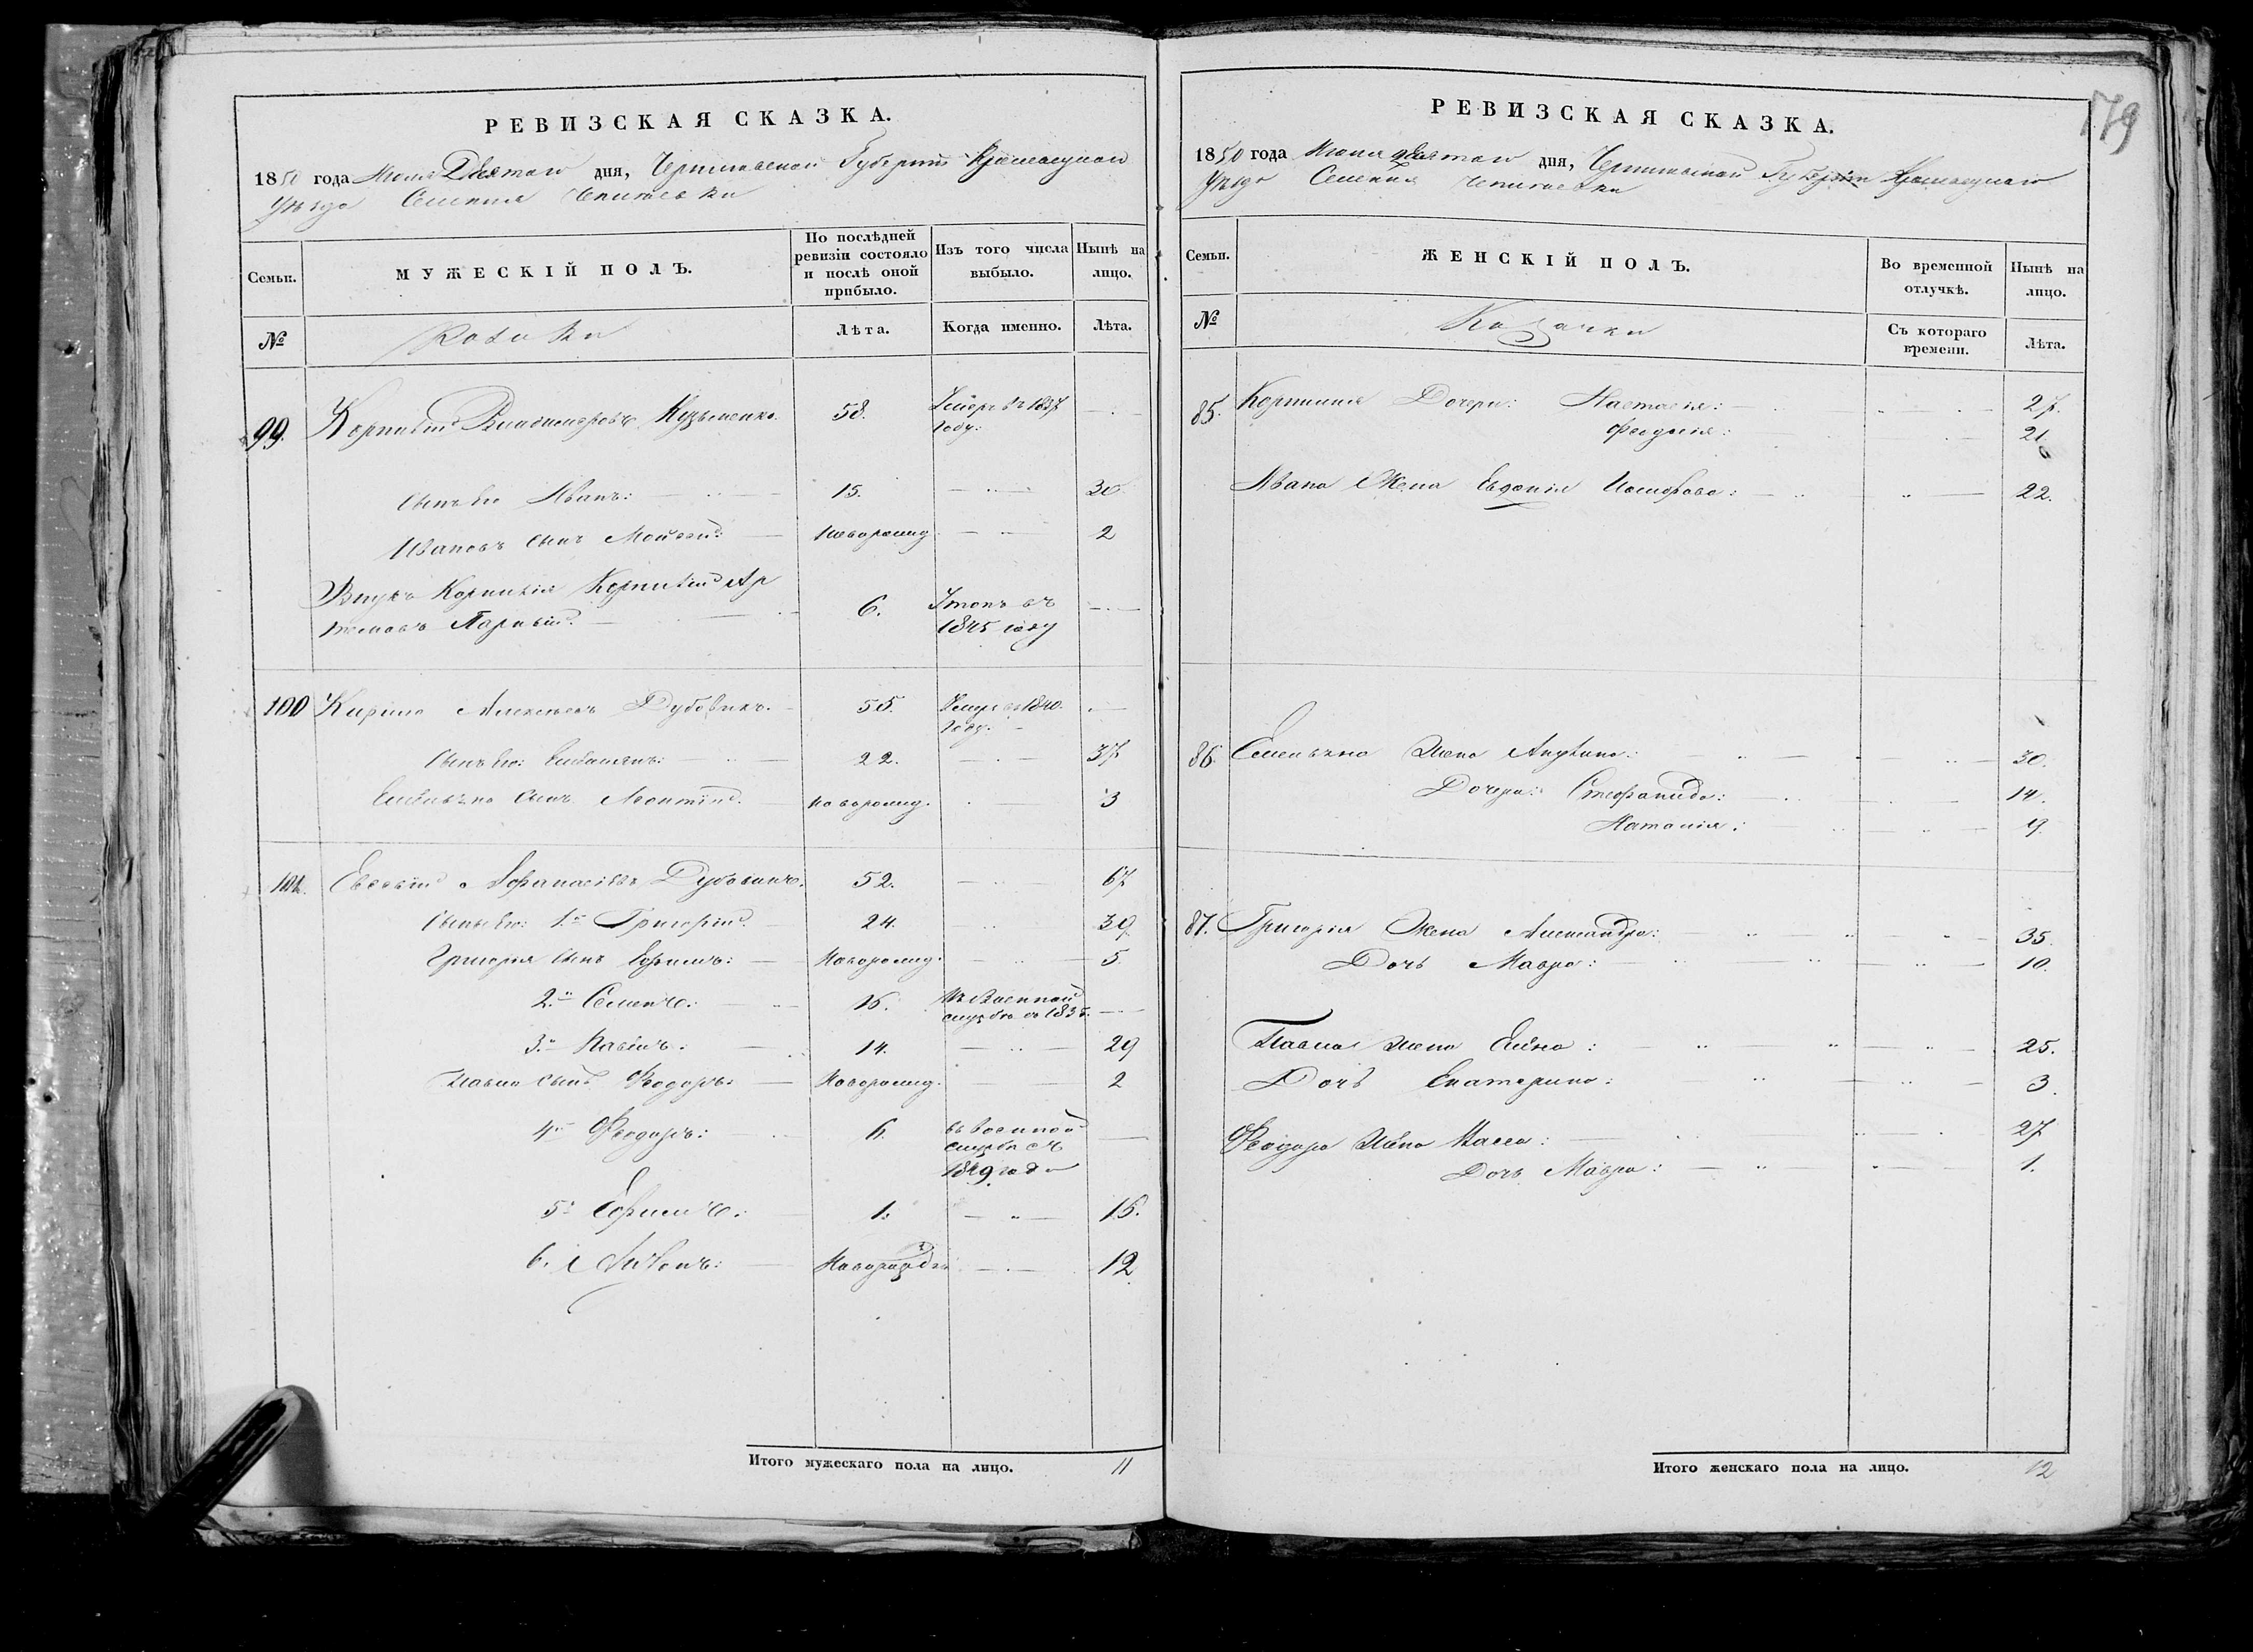 РЕВИЗСКАЯ СКАЗКА.
1850 года Июня Девятаго дня, Черниговской Губернии Кролевецкаго
Уѣзда Селенія
МУЖЕСКІЙ ПОЛЪ.
Семьи.
По послѣдней ревизіи состояло и послѣ оной прибыло.
Изъ того числа выбыло.
Нынѣ на лицо.
№
Козаки
Лѣта.
Когда именно.
Лѣта.
99. Корнилій Кузьменко 58. Умеръ въ 1837
году:
Сынъ Его Иванъ: 15. 30.
Ивановъ сынъ Мойсей: новорожд 2
Внукъ Корнилія Корнилій Ар
темовъ 6. въ
1845 году
100 Кирило Алексѣевъ Дубовикъ. 55. Умеръ въ 1840.
году.
Сынъ Его: Емельянъ: 22. 37
Емельяна сынъ Леонтій. новорожд. 3
101. Евсевій Афанасіевъ Дубовикъ. 52. 67
Сыны Его: 1й Григорій. 24. 39
Григорія сынъ Ефимъ: Новорожд. 5
2.й Семенъ: 16. Въ Военной
службѣ съ 1835.
3.й Павелъ: 14. 29
Павла Сынъ Феодоръ: Новорожд. 2
4й Феодоръ: 6. въ военной
службѣ съ
1849 года
5й Ефимъ: 1. 16.
6. Новорожд. 12
Итого мужескаго пола на лицо. 11
179
РЕВИЗСКАЯ СКАЗКА.
1850 года Июня девятаго дня, Черниговской Губерніи Кролевецкаго
Уѣзда Селенія
Семьи.
ЖЕНСКІЙ ПОЛЪ.
Во временной отлучкѣ.
Нынѣ на лицо.
№
Козачки
Съ котораго времени.
Лѣта.
85. Корнилія Дочери: Настасія: 27.
Феодосія: 21.
Ивана Жена Евдокія: 22.
86. Емельяна Жена 30.
Дочери: Стефанида: 14.
Наталія: 9
87. Григорія Жена Александра: 35.
Дочь Мавра: 10.
Павла Жена Анна: 25.
Дочь Екатерина: 3.
Феодора Жена 27
Дочь Мавра: 1.
Итого женскаго пола на лицо. 12